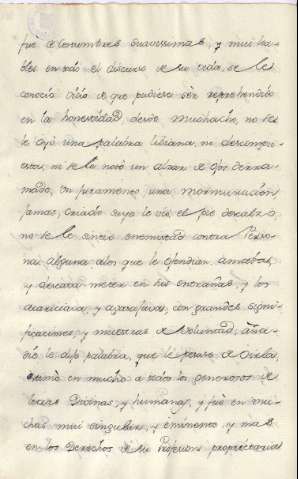 fué de costumbres suavissimas, y mui no
bles en todo el discurso de su vida, no se le
conoció vicio de que pudiese ser reprehendido
en la honestidad desde muchacho, no se
le oyó una palabra liviana, ni descompu
esta, ni se le notó un alzar de ojos derra
mado, ni juramento, una mormuración
jamas, criado suyo le vió el pie descalzo,
no se le sintió enemistad contra Perso
na alguna, a los que le ofendian, amaba,
y deseaba meter en sus entrañas, y los
acariciava, y agasajava, con grandes signi
ficaciones, y muestras de voluntad,
le dijo palabra, que le pesase de oirla,
estimó en mucho a todos los generosos de
letras Divinas, y humanas, y fué en mu
chas mui singular, y eminente, y mas
en los Derechos de su Profession propietarias